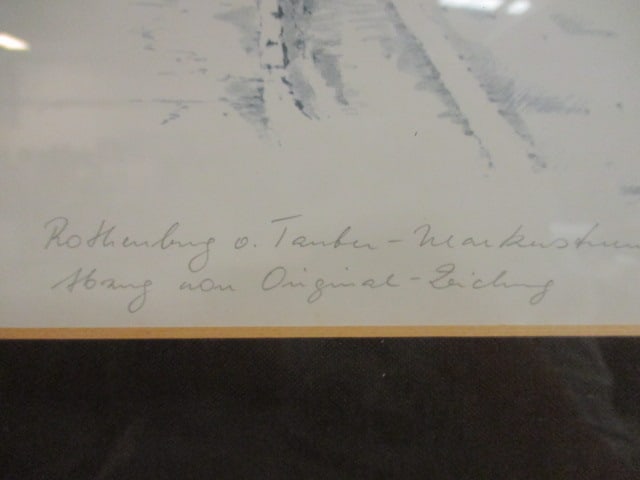 Rothenburg o. Tauber - Markusturm
Abzug von Original-Zeichnung